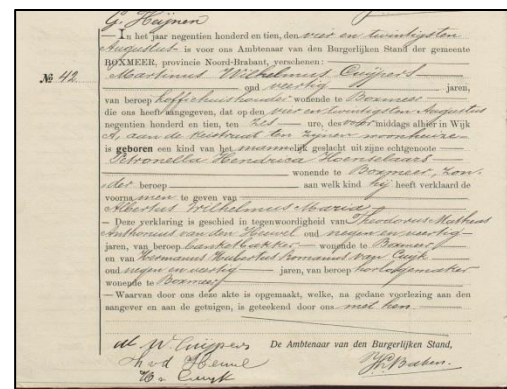 G. Heijnen
In het jaar negentien honderd en tien, den vier en twintigsten
Augustus is voor ons Ambtenaar van den Burgerlijken Stand der gemeente
BOXMEER, provincie Noord-Brabant, verschenen:
№ 42.
Martinus Wilhelmus Cuijpers
oud veertig jaren,
van beroep koffiehuishouder wonende te Boxmeer
die ons heeft aangegeven, dat op den vier en twintigsten Augustus
negentien honderd en tien, ten zes ure, des voormiddags alhier in Wijk
A, aan de ten zijnen woonhuize
is geboren een kind van het mannelijk geslacht uit zijne echtgenoote
Petronella Hendrica Hoenselaars
wonende te Boxmeer, zon-
der beroep aan welk kind hij heeft verklaard de
voornamen te geven van
Albertus Wilhelmus Maria
— Deze verklaring is geschied in tegenwoordigheid van Theodorus Mathias
Anthonius van den Heuvel oud negen en veertig
jaren, van beroep banketbakker wonende te Boxmeer
en van Hermanus Hubertus Romanus van Cuyk
oud negen en veertig jaren, van beroep horlogemaker
wonende te Boxmeer
— Waarvan door ons deze akte is opgemaakt, welke, na gedane voorlezing aan den
aangever en aan de getuigen, is geteekend door ons met hen.
M. W. Cuijpers De Ambtenaar van den Burgerlijken Stand,
Th v d Heuvel
H v Cuyk